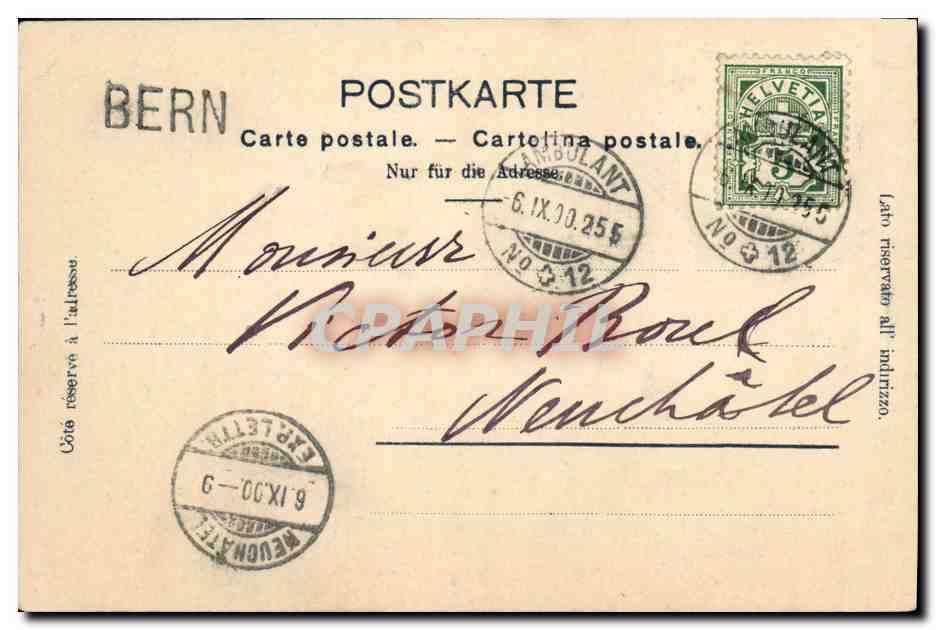 BERN
POSTKARTE
Carte postale. — Cartolina postale.
Nur für die Adresse.
FRANCO
HELVETIA
5
AMBULANT
6.IX.00.255
No 12
AMBULANT
6.IX.00.255
No 12
Côté réservé à l'adresse.
Lato riservato all' indirizzo.
Monsieur
Victor
à
Neuchâtel
CPAPHIL
EXP. LETTR.
6.IX.00.—9
NEUCHÂTEL